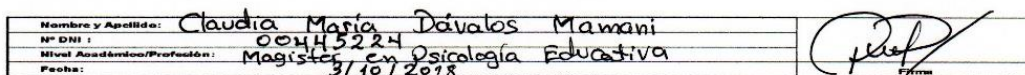 Nombre y Apellido: Claudia María Dávalos Mamani
Nº DNI : 00445224
Nivel Académico/Profesión: Magister en Psicología Educativa
Fecha: 3/10/2018
Firma